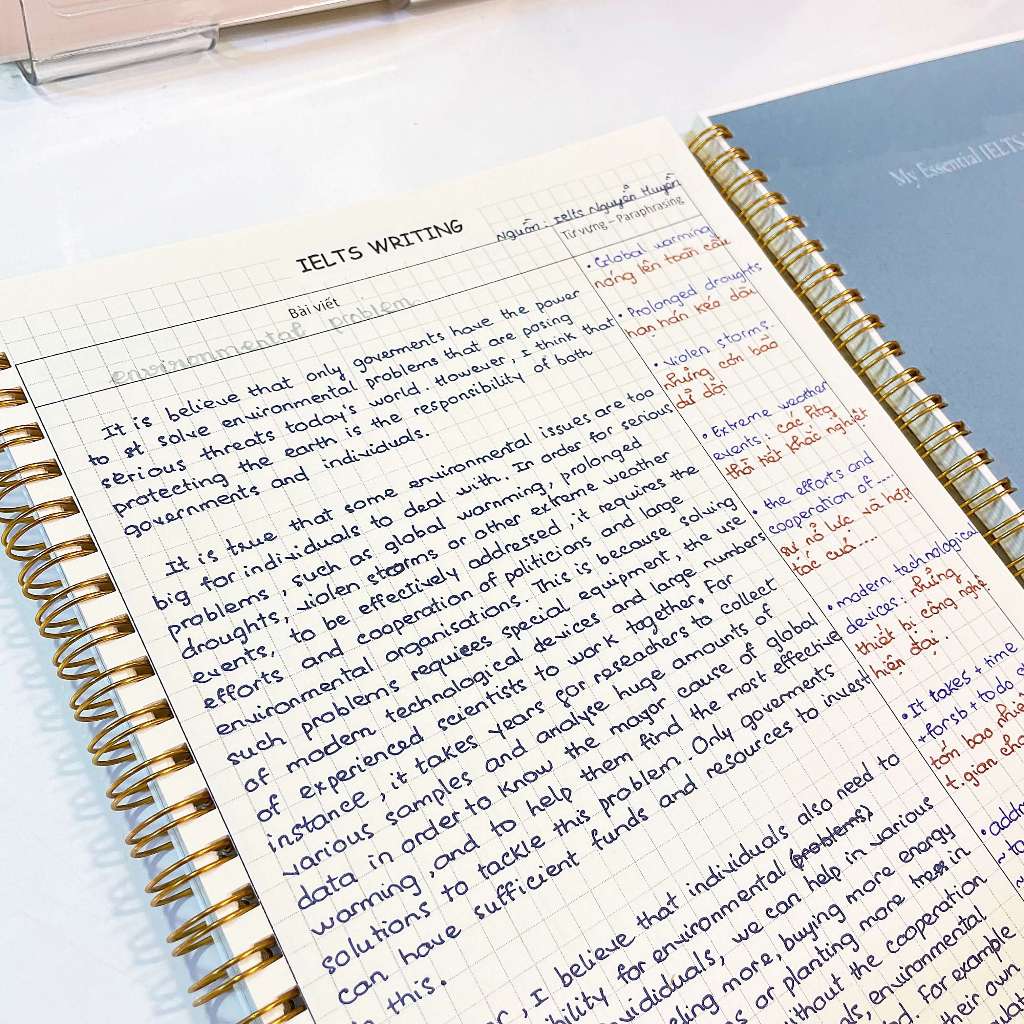 My Essential IELTS
IELTS WRITING
Nguồn: Ielts Nguyễn Huyền
Bài viết
Từ vựng – Paraphrasing
environmental problem
It is believe that only goverments have the power
to st solve environmental problems that are posing
serious threats today's world. However, I think that
protecting the earth is the responsibility of both
governments and individuals.
It is true that some environmental issues are too
big for individuals to deal with. In order for serious
problems, such as global warmming, prolonged
droughts, violen storms or other extreme weather
events, to be effectively addressed, it requires the
efforts and cooperation of politicions and large
environmental organisations. This is because solving
such problems requires special equipment, the use
of modern technological devices and large numbers
of experienced scientists to work together. For
instance, it takes years for reseachers to collect
various samples and analyse huge amounts of
data in order to know the mayor cause of global
warming, and to help them find the most effective
solutions to tackle this problem. Only goverments
can have sufficient funds and resources to invest
this.
, I believe that individuals also need to
for environmental (problems)
, we can help in various
more, buying more energy
or planting more trees in
without the cooperation
, environmental
. For example
their own
• Global warming
nóng lên toàn cầu
• Prolonged droughts
hạn hán kéo dài
• violen storms.
những cơn bão
dữ dội
• Extreme weather
events: các htg
thời tiết khắc nghiệt
• the efforts and
cooperation of ....
sự nỗ lực và hợp
tác của ....
• modern technological
devices: những
thiết bị công nghệ
hiện đại.
• It takes + time
+ for sb + to do
tốn bao
t.gian